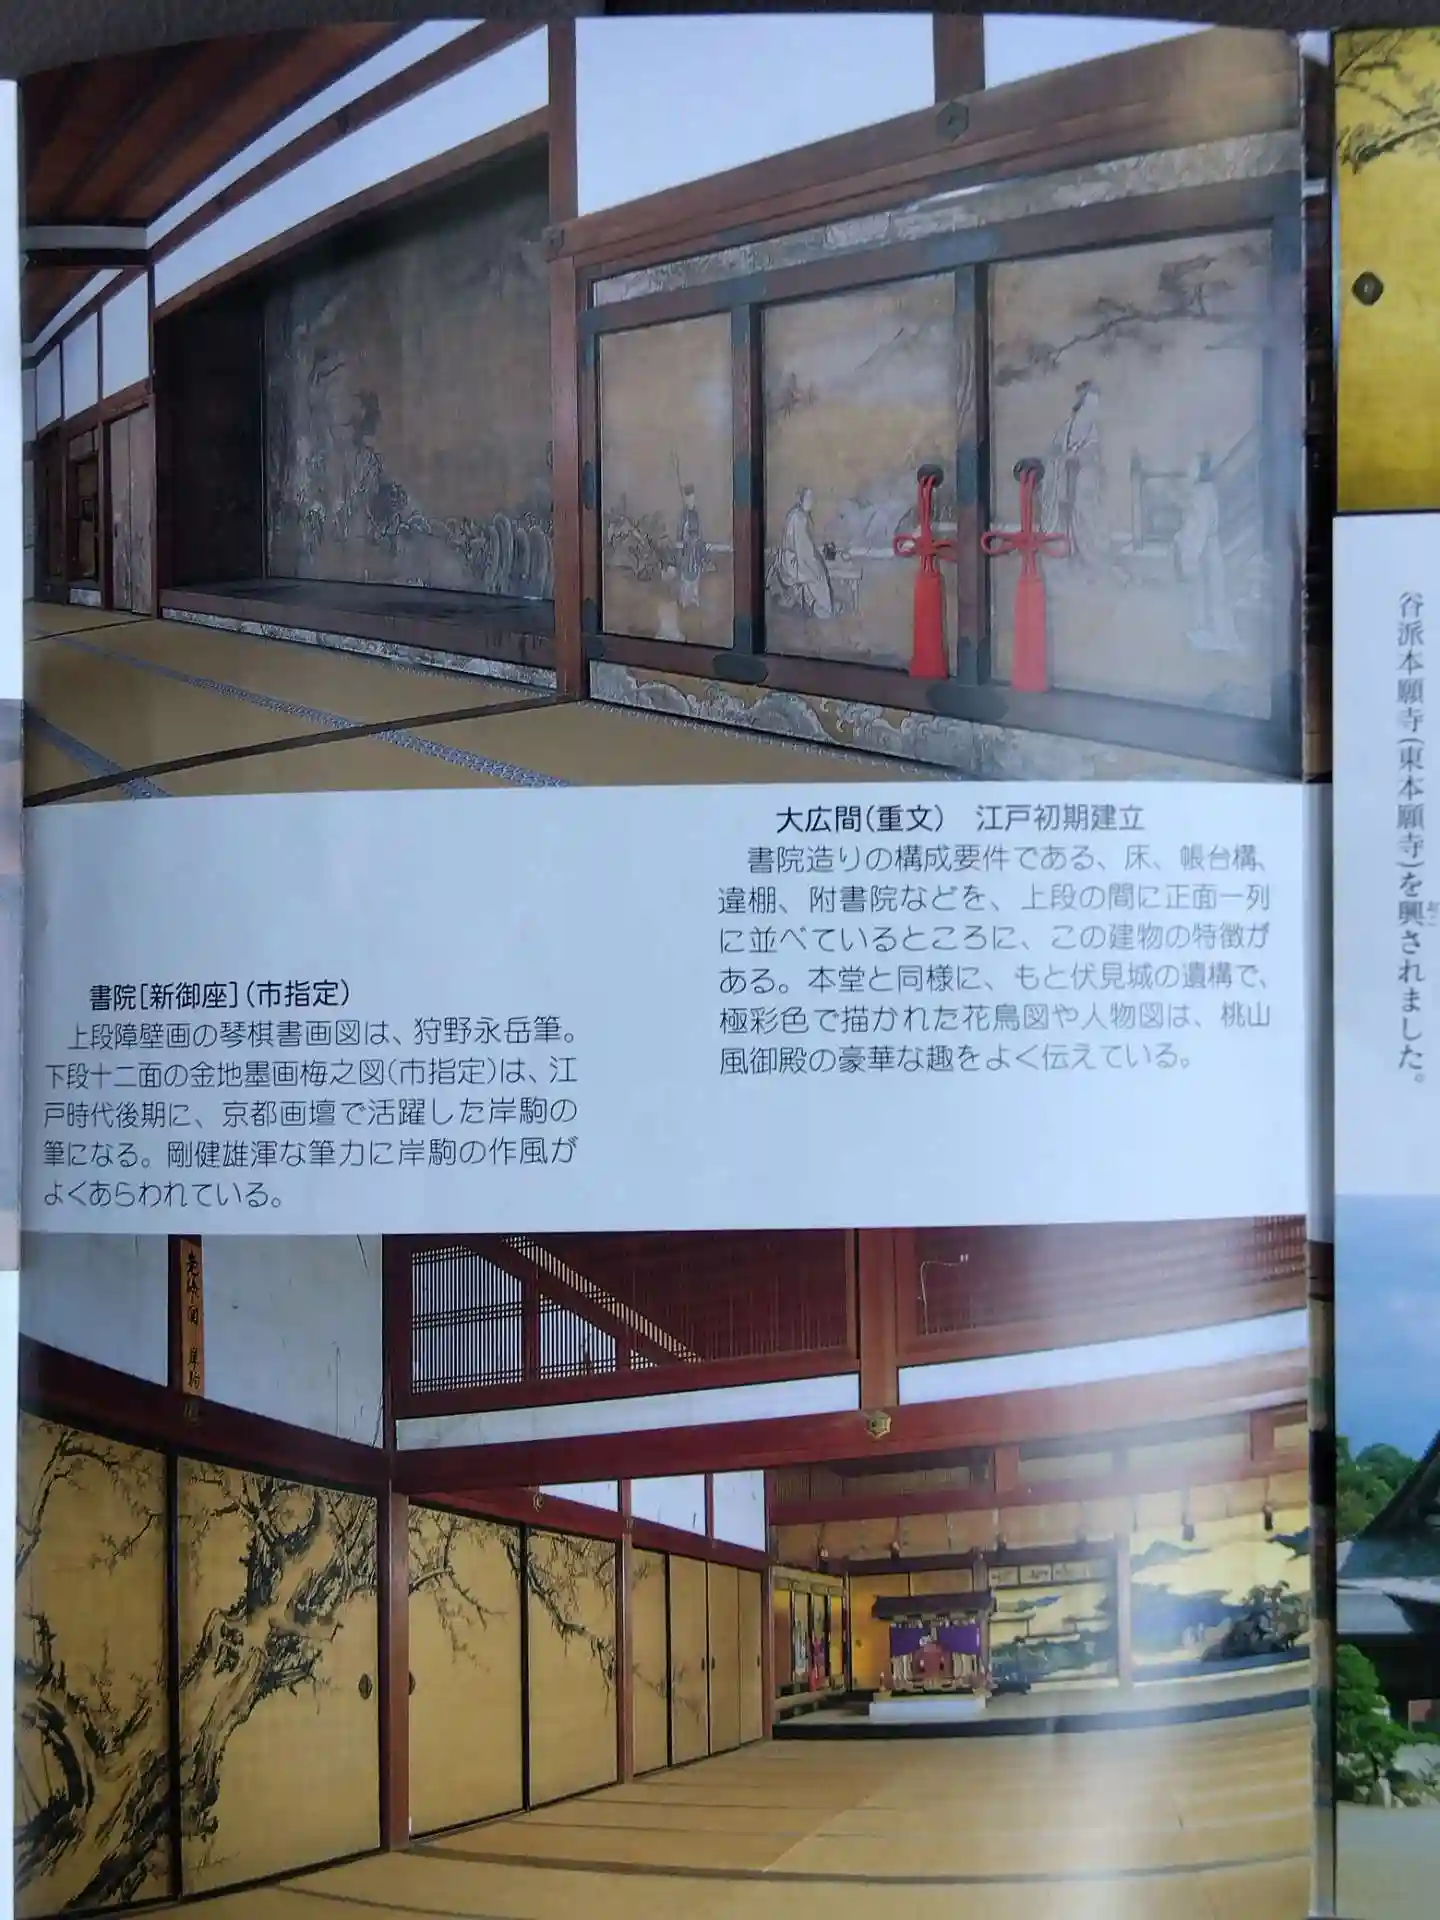 大広間(重文) 江戸初期建立
書院造りの構成要件である、床、帳台構、
違棚、附書院などを、上段の間に正面一列
に並べているところに、この建物の特徴が
ある。本堂と同様に、もと伏見城の遺構で、
極彩色で描かれた花鳥図や人物図は、桃山
風御殿の豪華な趣をよく伝えている。
書院[新御座](市指定)
上段障壁画の琴棋書画図は、狩野永岳筆。
下段十二面の金地墨画梅之図(市指定)は、江
戸時代後期に、京都画壇で活躍した岸駒の
筆になる。剛健雄渾な筆力に岸駒の作風が
よくあらわれている。
谷派本願寺(東本願寺)を興されました。
岸駒